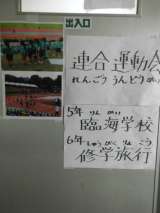 出入口
連合運動会
れんごう うんどうかい
5年 りん かい
臨海学校
6年 しゅう がく りょ こう
修学旅行